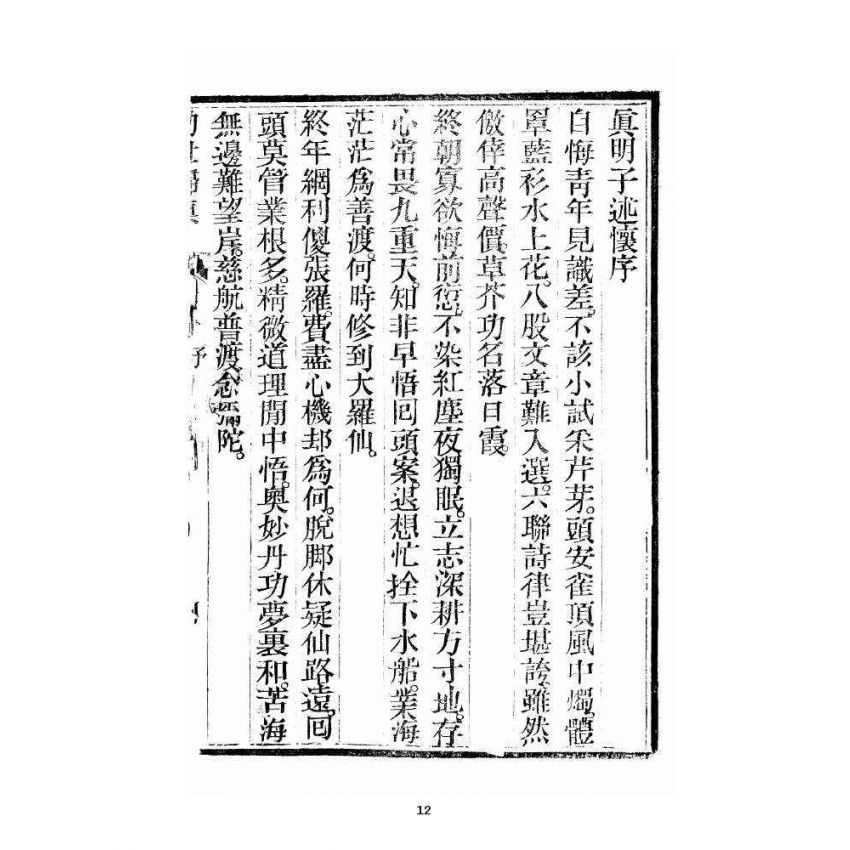 眞明子述懷序
自悔靑年見識差。不該小試釆芹芽。頭安雀頂風中燭。體
罩藍衫水上花。八股文章難入選。六聯詩律豈堪誇。雖然
僥倖高聲價。草芥功名落日霞。
終朝算欲悔前愆。不染紅塵夜獨眠。立志深耕方寸地。存
心常畏九重天。知非早悟回頭案。退想忙拴下水船。業海
茫茫爲善渡。何時修到大羅仙。
終年網利傻張羅。費盡心機却爲何。脫脚休疑仙路遠。回
頭莫管業根多。精微道理閒中悟。奧妙丹功夢裏和。苦海
無邊難望岸。慈航普渡念彌陀。
序
12